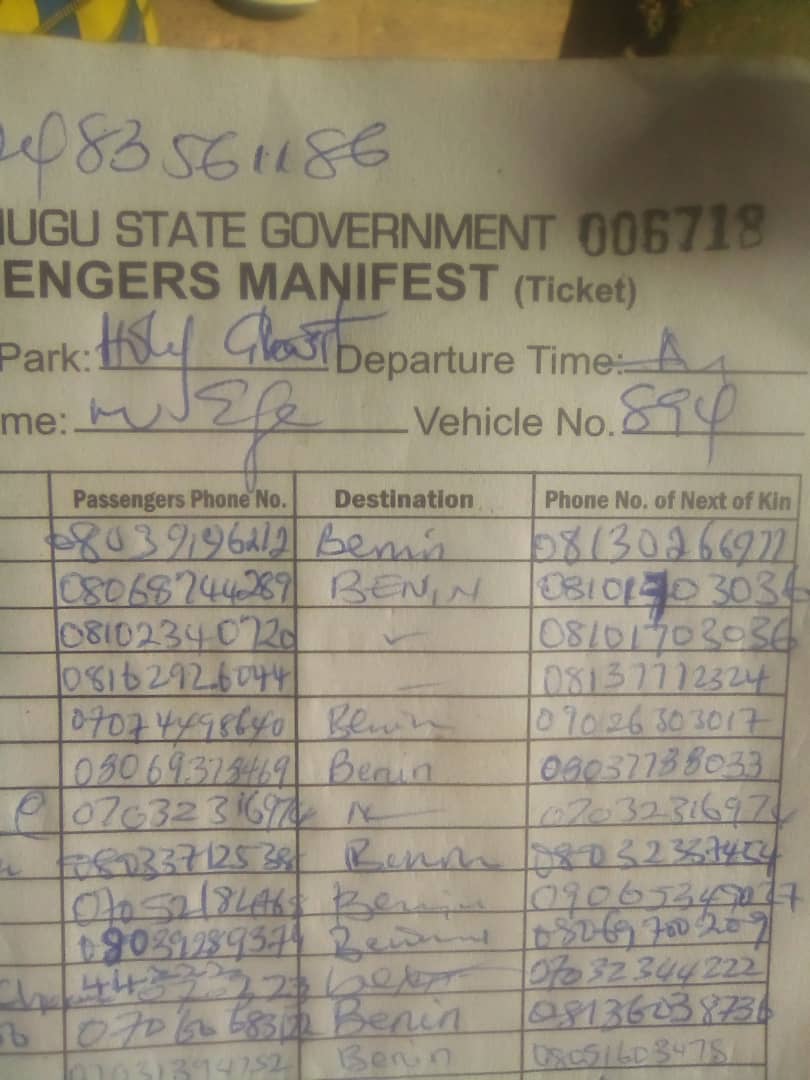 83561186
UGU STATE GOVERNMENT 006718
ENGERS MANIFEST (Ticket)
Park: Holy Ghost Departure Time:
me: Efe Vehicle No. 894
Passengers Phone No. Destination Phone No. of Next of Kin
08039196212 Benin 08130266977
08068744289 BENIN 0810170303
08102340720 ✓ 08101703036
08162926044 — 08137712324
07074498640 Benin 09026303017
08069378469 Benin 08037788033
0703231697 07032316974
08033712538 Benin
Benin
08039289374 Benin 08069700209
07032344222
Benin 08136038736
07031394752 Benin 08051603478